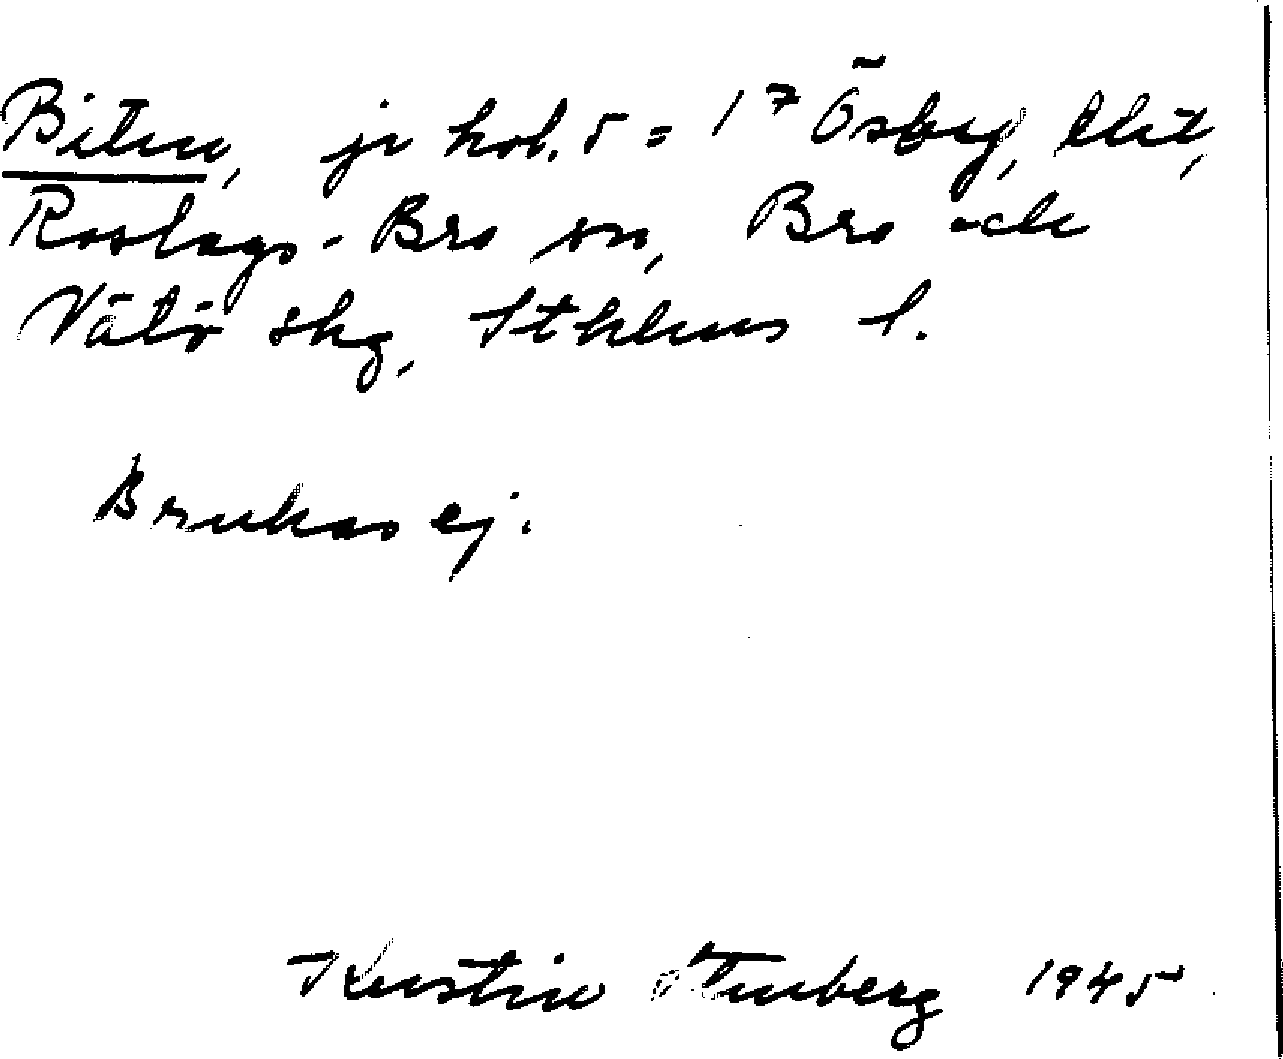 Biten, jr kol. 5 = 1⁷ Ösby, Ekeb,
Roslags-Bro sn, Bro och
Vätö skg, Sthlms l.
Brukas ej.
Kerstin Stenberg 1945